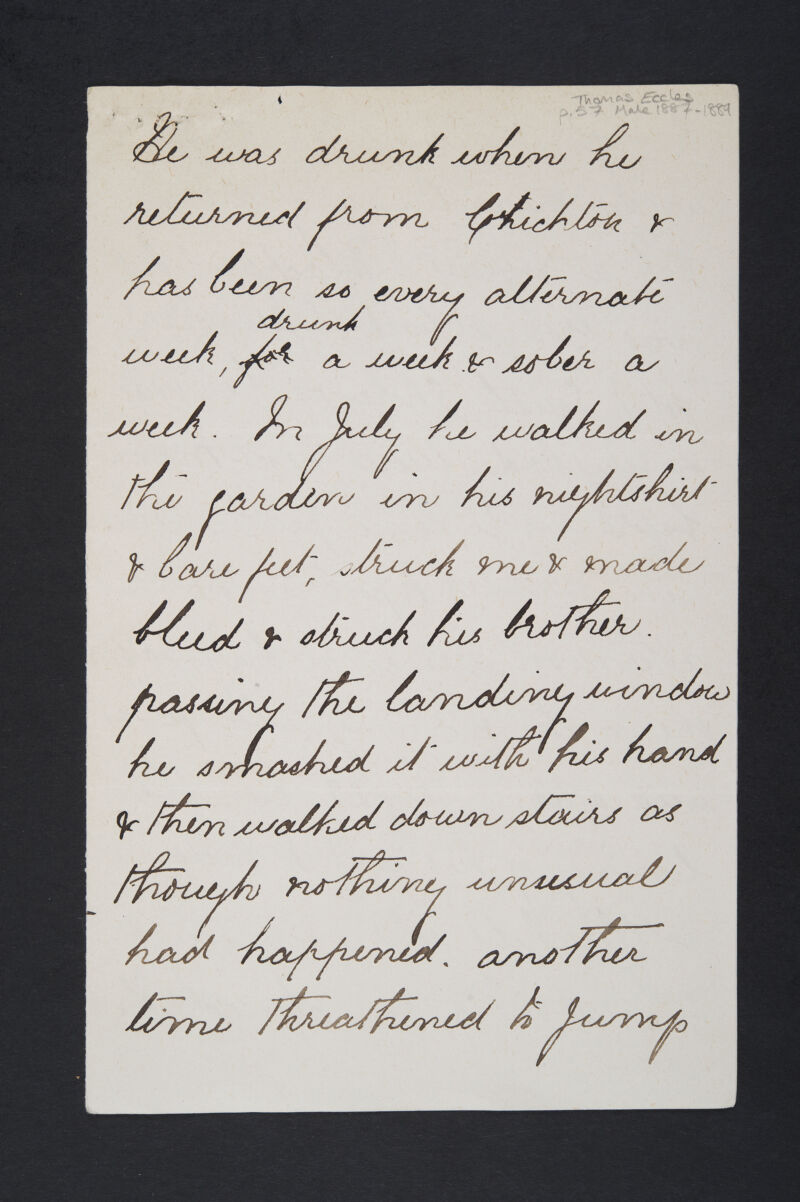 Thomas Eccles
p.57 Male 1887-1889
He was drunk when he
returned from Crichton &
has been so every alternate
drunk
week, for a week & sober a
week. In July he walked in
the garden in his nightshirt
& bare feet, struck me & made
bleed & struck his brother.
passing the landing window
he smashed it with his hand
& then walked down stairs as
though nothing unusual
had happened. another
time threathened to jump